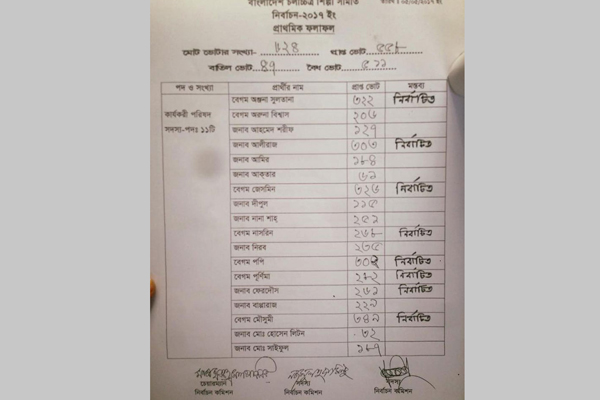 বাংলাদেশ চলচ্চিত্র শিল্পী সমিতি
নির্বাচন-২০১৭ ইং
প্রাথমিক ফলাফল
মোট ভোটার সংখ্যা- ৬২৪ প্রাপ্ত ভোট ৫৫৮
বাতিল ভোট ৪৭ বৈধ ভোট ৫১১
পদ ও সংখ্যা প্রার্থীর নাম প্রাপ্ত ভোট মন্তব্য
বেগম অঞ্জনা সুলতানা ৩২২ নির্বাচিত
কার্যকরী পরিষদ বেগম অরুনা বিশ্বাস ২০৬
সদস্য-পদঃ ১১টি জনাব আহমেদ শরীফ ১২৭
জনাব আলীরাজ ৩০৩ নির্বাচিত
জনাব আমির ১৮৪
জনাব আক্তার ৬১
বেগম জেসমিন ৩২৬ নির্বাচিত
জনাব দীপুল ১১৫
জনাব নানা শাহ্ ২৫১
বেগম নাসরিন ২৬৮ নির্বাচিত
জনাব নিরব ২৩৫
বেগম পপি ৩০২ নির্বাচিত
বেগম পূর্ণিমা ২৮২ নির্বাচিত
জনাব ফেরদৌস ২৬১ নির্বাচিত
জনাব বাপ্পারাজ ২২১
বেগম মৌসুমী ৩৪১ নির্বাচিত
জনাব মোঃ হোসেন লিটন ৩২
জনাব মোঃ সাইফুল ১৮৭
চেয়ারম্যান সদস্য সদস্য
নির্বাচন কমিশন নির্বাচন কমিশন নির্বাচন কমিশন